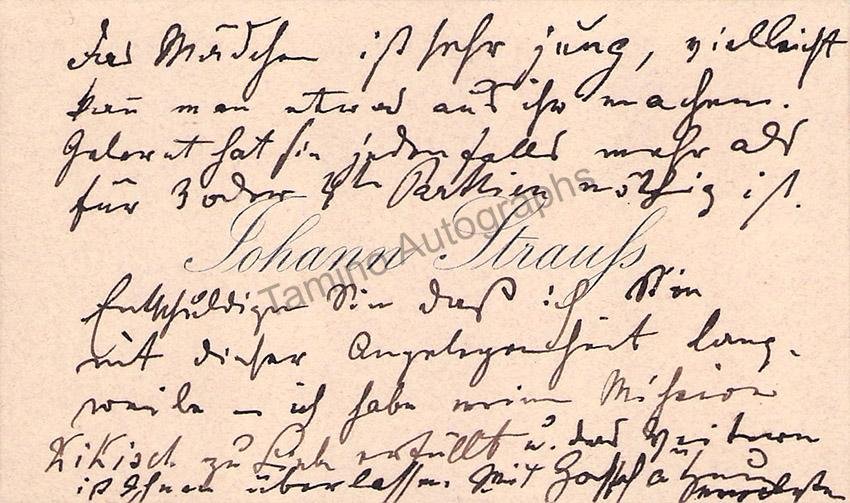 Das Mädchen ist sehr jung, vielleicht
kann man etwas aus ihr machen.
Gelernt hat sie jedenfalls mehr als
für 3 oder 4te Parthien nöthig ist.
Johann Strauss
Tamino Autographs
Entschuldigen Sie daß ich Sie
mit dieser Angelegenheit lang-
weile – ich habe meine Mission
Nikisch zu Liebe erfüllt u. das Weitere
ist Ihnen überlassen. Mit